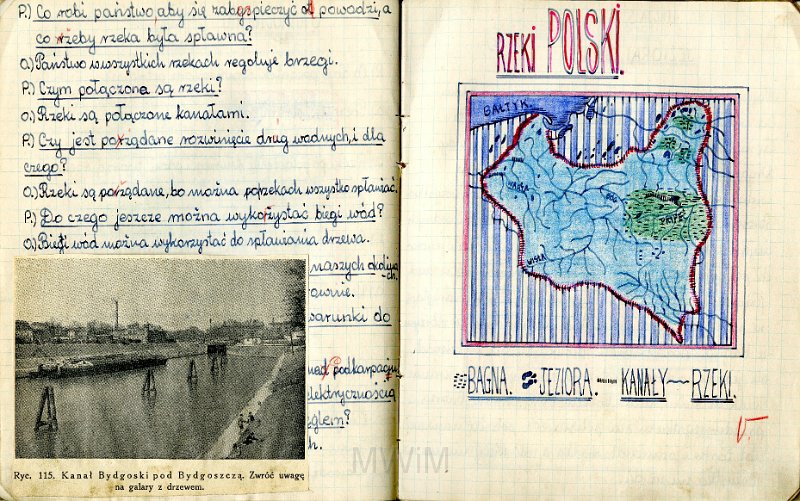 P.) Co robi państwo, aby się zabespieczyć od powodzi, a
co rzeby rzeka była spławna?
O.) Państwo wwszystkich rzekach reguluje brzegi.
P.) Czym połączona są rzeki?
O.) Rzeki są połączone kanałami.
P.) Czy jest porządane rozwinięcie drug wodnych, i dla
czego?
O.) Rzeki są porządane, bo można porzekach wszystko spławiać.
P.) Do czego jeszcze można wykorzystać biegi wód?
O.) Biegi wód można wykorzystać do spławiania drzewa.
naszych okolicach.
ownie.
warunki do
nad podkarpaciu
elektrycznością
węglem?
h.
Ryc. 115. Kanał Bydgoski pod Bydgoszczą. Zwróć uwagę
na galary z drzewem.
RZEKI POLSKI.
BAŁTYK.
WARTA
BUG
PRYPEĆ
WISŁA
BAGNA. JEZIORA. KANAŁY RZEKI.
V.
MWiM